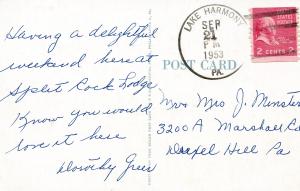 Having a delightful
weekend here at
Split Rock Lodge
Know you would
love it here
Dorothy Greer
LAKE HARMONY
SEP
21
PM
1953
PA.
2 CENTS 2
POST CARD
Mr Mrs J. Minster
3200 A Marshall Rd
Drexel Hill Pa